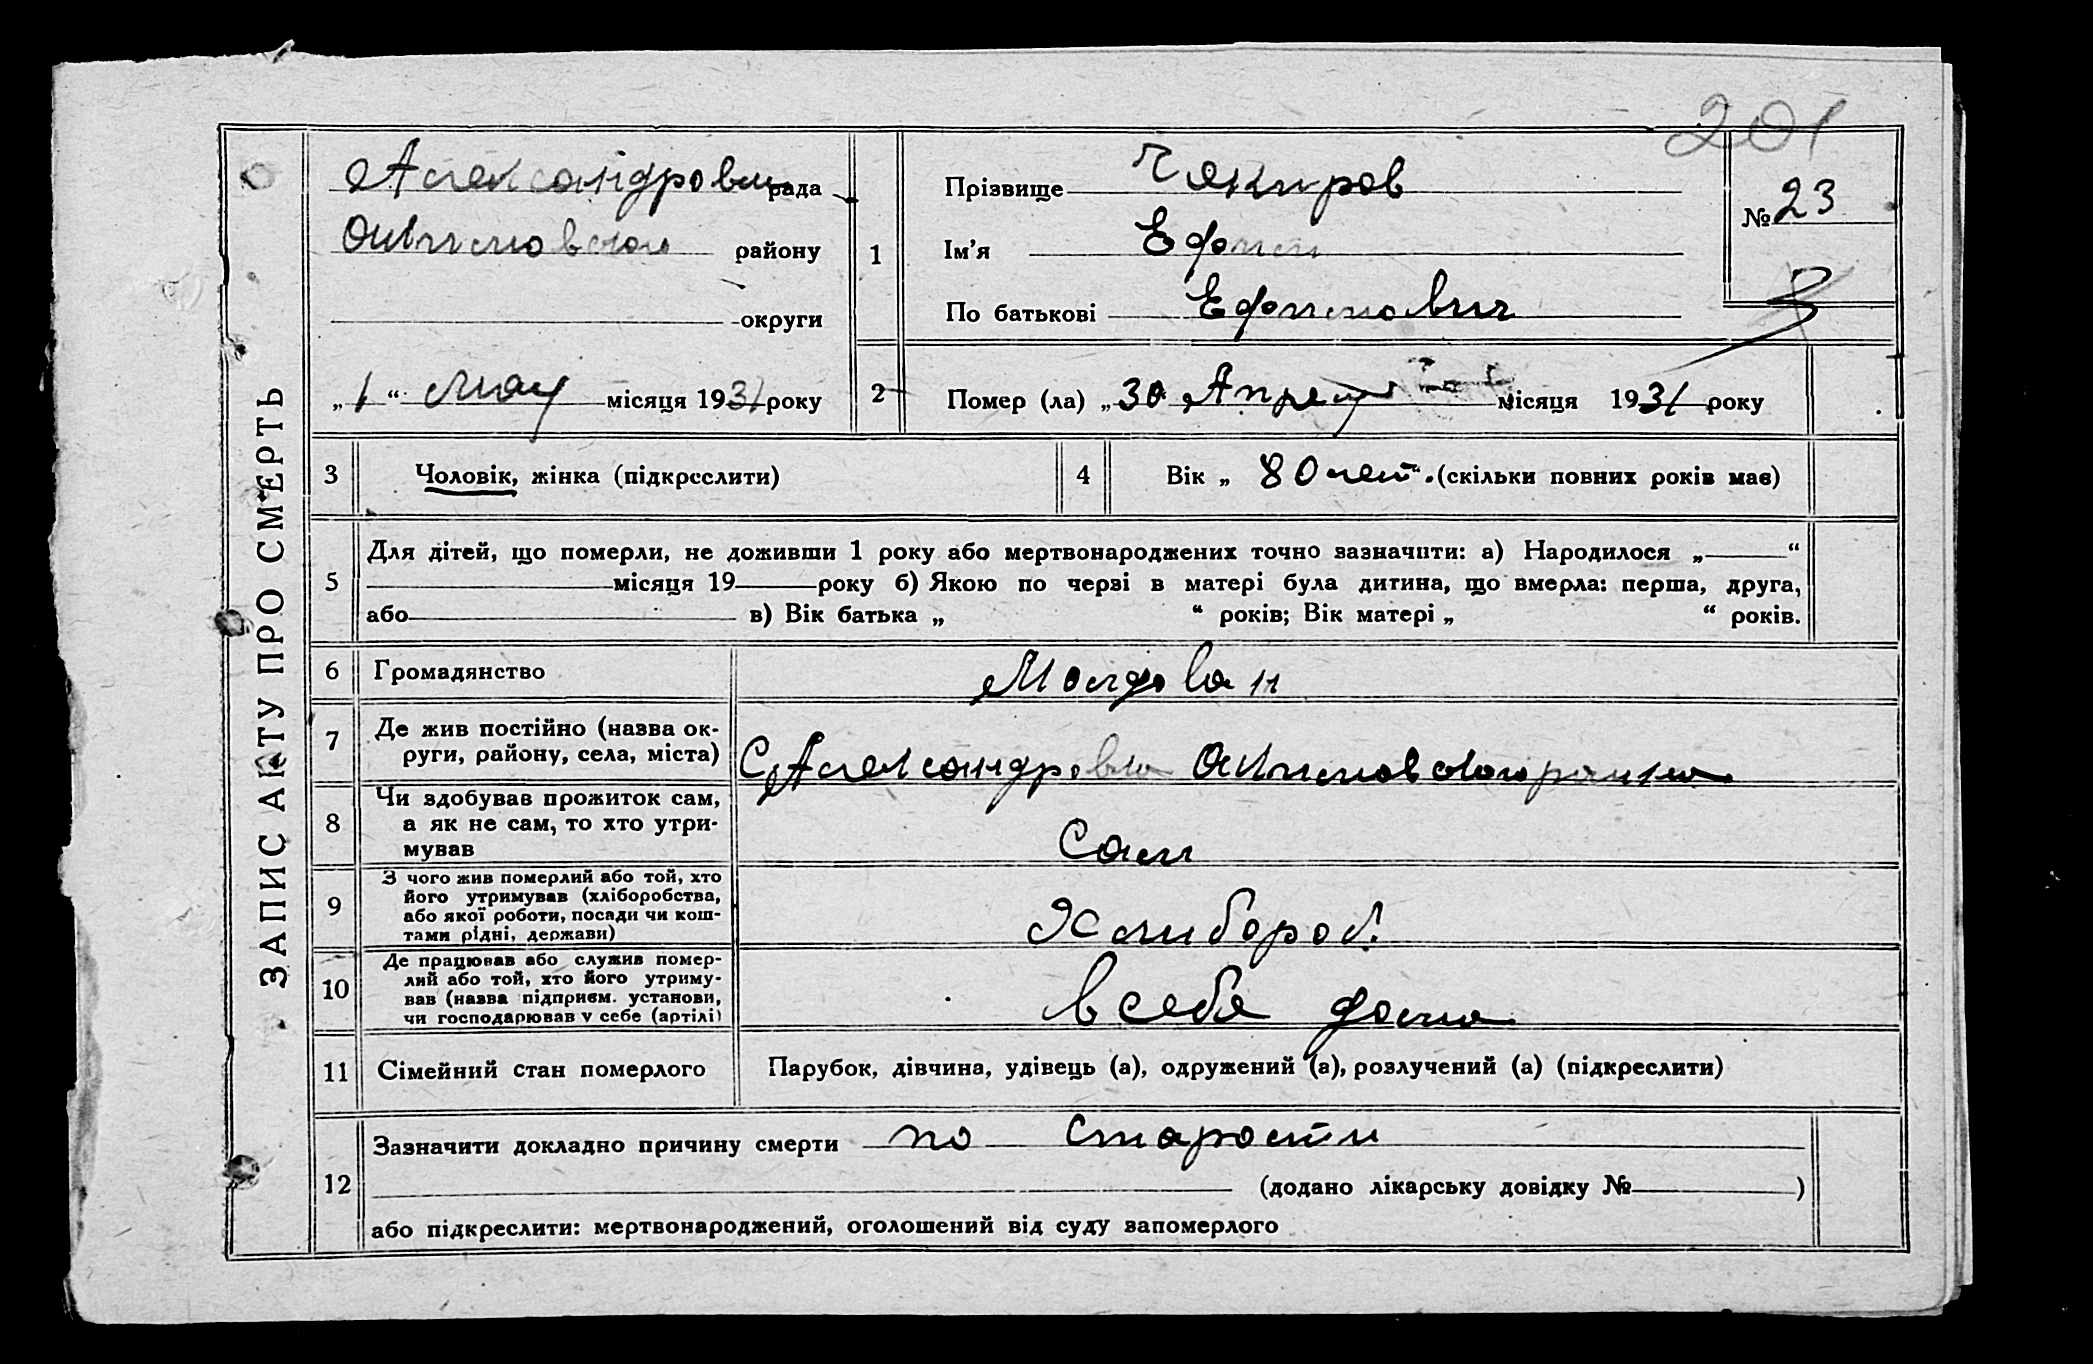 201
ЗАПИС АКТУ ПРО СМЕРТЬ
Александровка рада
района
округи
„1“ Мая місяця 1931 року
1
Прізвище Чекиров
Ім’я Ефим
По батькові Ефимович
№ 23
2
Помер (ла) „30 Апреля місяця 1931 року
3
Чоловік, жінка (підкреслити)
4
Вік „ 80 лет “ (скільки повних років має)
5
Для дітей, що померли, не доживши 1 року або мертвонароджених точно зазначити: а) Народилося „ “
місяця 19 року б) Якою по черзі в матері була дитина, що вмерла: перша, друга,
або в) Вік батька „ “ років; Вік матері „ “ років.
6
Громадянство
Молдован
7
Де жив постійно (назва ок-
руги, району, села, міста)
С Александровка
8
Чи здобував прожиток сам,
а як не сам, то хто утри-
мував
Сам
9
З чого жив померлий або той, хто
його утримував (хліборобства,
або якої роботи, посади чи кош-
тами рідні, держави)
Хлибороб
10
Де працював або служив помер-
лий або той, хто його утриму-
вав (назва підприєм. установи,
чи господарював у себе (артілі)
в себя дома
11
Сімейний стан померлого
Парубок, дівчина, удівець (а), одружений (а), розлучений (а) (підкреслити)
12
Зазначити докладно причину смерти по старости
(додано лікарську довідку № )
або підкреслити: мертвонароджений, оголошений від суду запомерлого